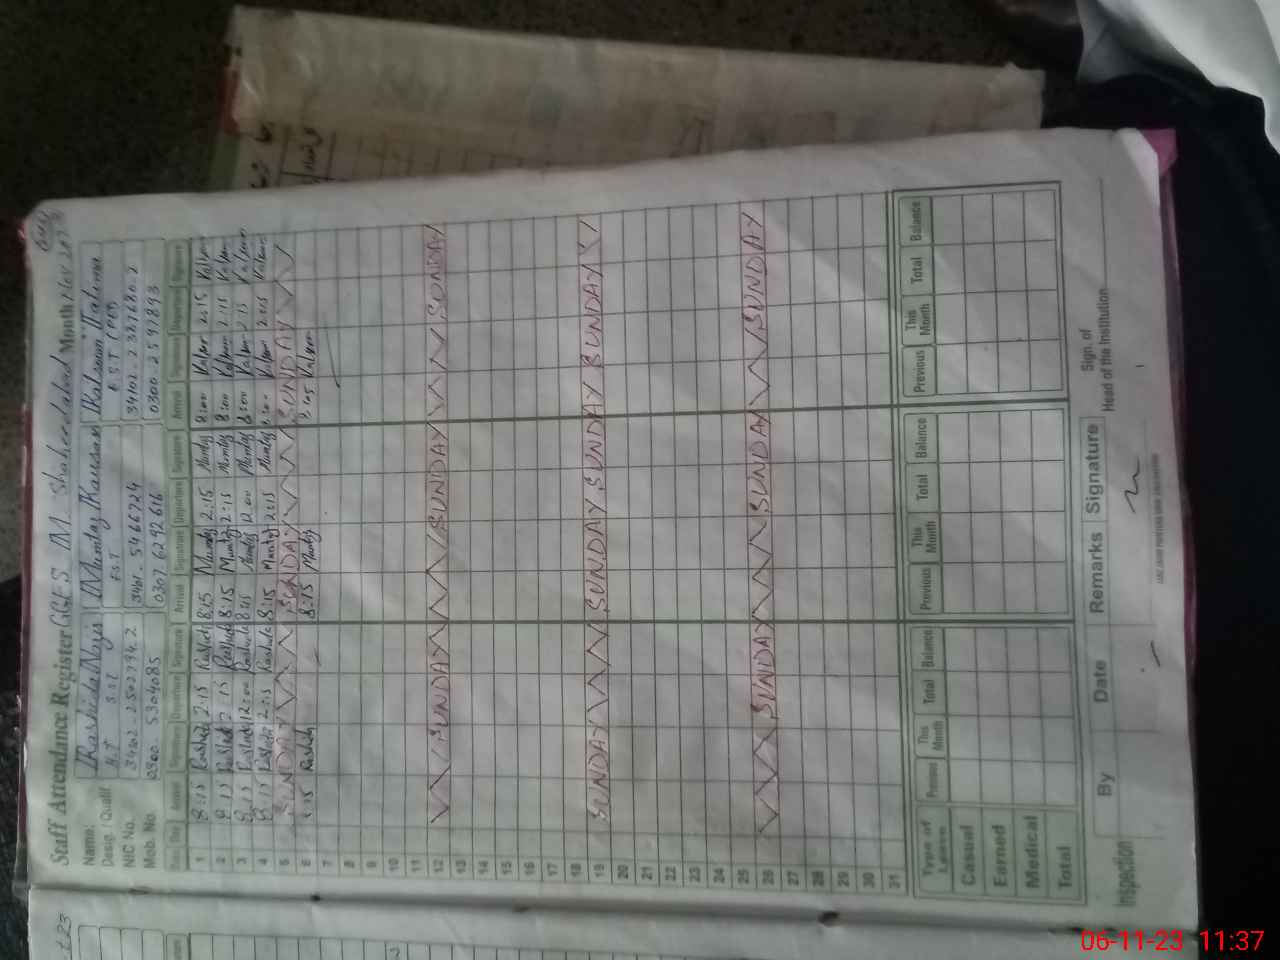 Staff Attendance Register GGES M. Shaheedabad Month Nov
Name: Rashida Mumtaz Kausar Kalsoom Fatima
Desig. / Qualif. S.S.T E.S.T E.S.T
NIC No. 34101-5466724
Mob. No. 0300-5304085 0307 6292616 0300-2591893
Arrival Signature Departure Signature Arrival Signature Departure Signature Arrival Signature Departure Signature
1 8:15 Rashida 2:15 Rashida 8:15 Mumtaz 2:15 Mumtaz 8:00 Kalsoom 2:15 Kalsoom
2 8:15 Rashida 2:15 Rashida 8:15 Mumtaz 2:15 Mumtaz 8:00 Kalsoom 2:15 Kalsoom
3 8:15 Rashida 12:00 Rashida 8:15 Mumtaz 12:00 Mumtaz 8:00 Kalsoom 2:15 Kalsoom
4 8:15 Rashida 2:15 Rashida 8:15 Mumtaz 2:15 Mumtaz 8:00 Kalsoom 2:15 Kalsoom
5 SUNDAY SUNDAY SUNDAY
6 8:15 Rashida 8:15 Mumtaz Kalsoom
7
8
9
10
11
12 SUNDAY SUNDAY SUNDAY
13
14
15
16
17
18
19 SUNDAY SUNDAY SUNDAY SUNDAY SUNDAY
20
21
22
23
24
25
26 SUNDAY SUNDAY SUNDAY
27
28
29
30
31
Type of Leave Previous This Month Total Balance Previous This Month Total Balance Previous This Month Total Balance
Casual
Earned
Medical
Total
Inspection By Date Remarks Signature
Sign. of
Head of the Institution
06-11-23 11:37